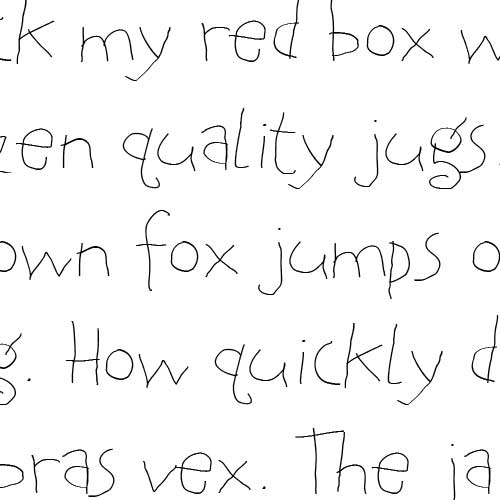 ck my red box w
zen quality jugs.
own fox jumps o
g. How quickly d
bras vex. The ja